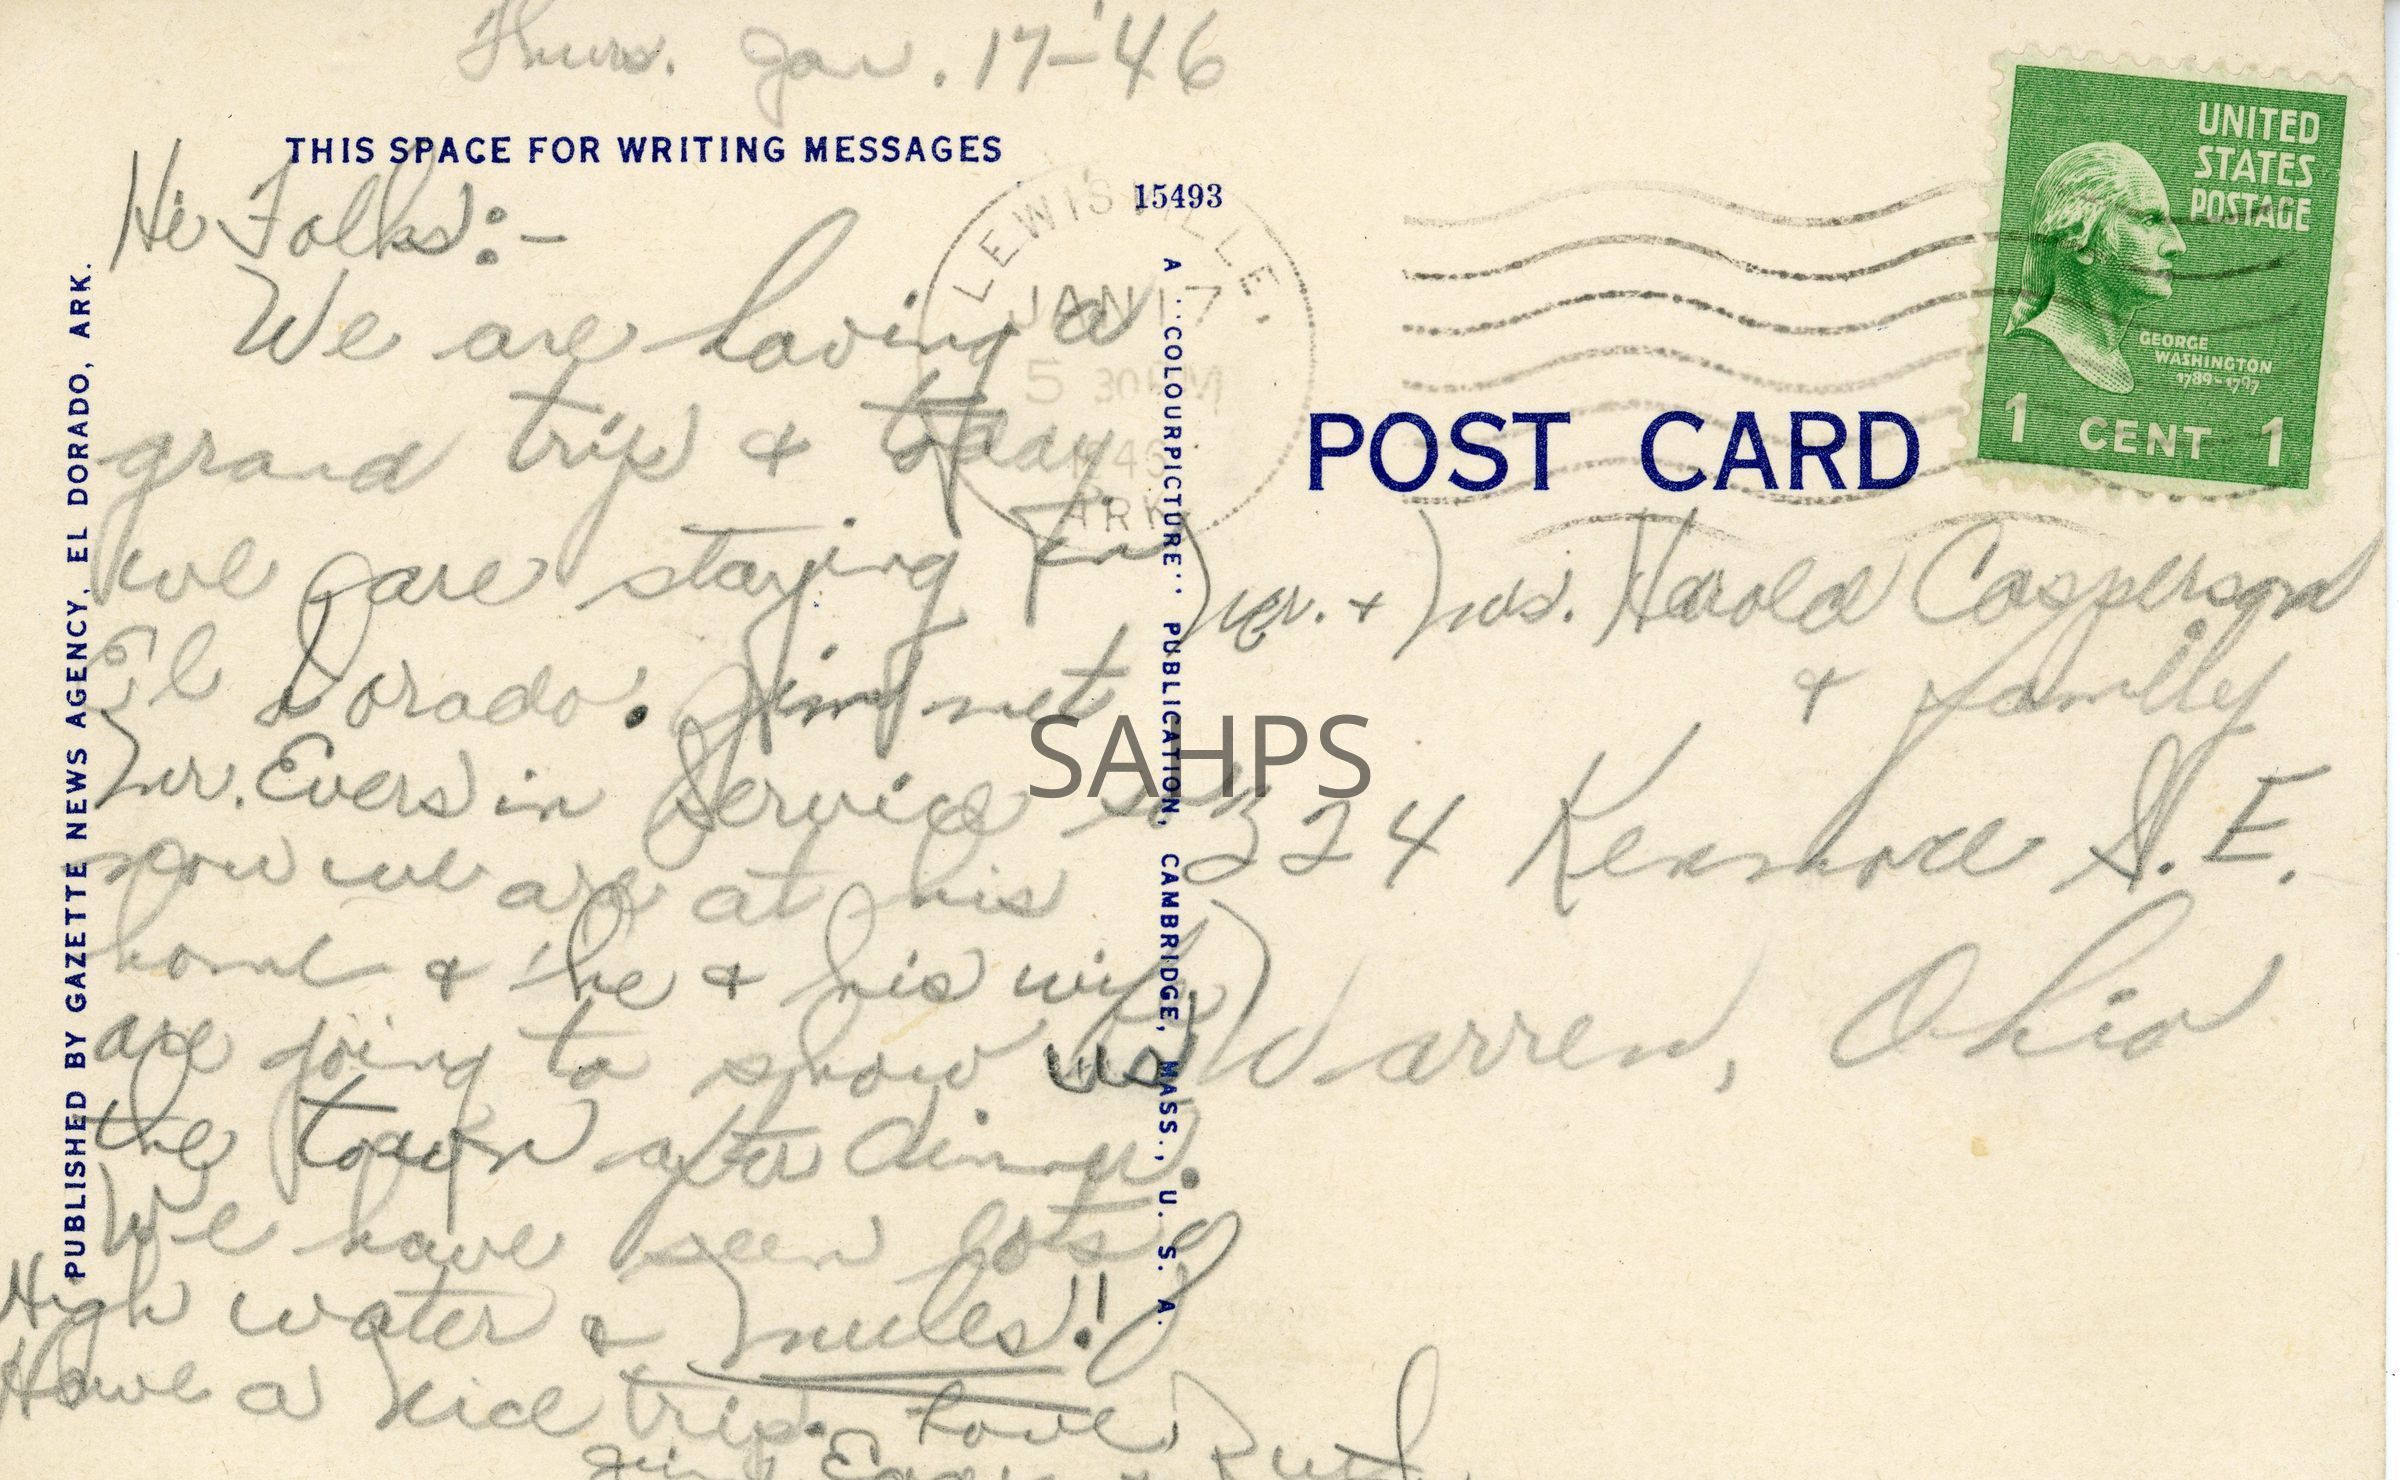 Thurs. Jan. 17-'46
THIS SPACE FOR WRITING MESSAGES
Hi Folks:-
We are having a
grand trip & today
we are staying in
El Dorado. Jim met
Mr. Evers in Service so
now we are at his
home & he & his wife
are going to show us
the town after dinner.
We have seen lots of
High water & mules!!
Have a nice trip. Love,
Jim, & Ruth
PUBLISHED BY GAZETTE NEWS AGENCY, EL DORADO, ARK.
15493
A "COLOURPICTURE" PUBLICATION, CAMBRIDGE, MASS., U. S. A.
LEWISVILLE,
JAN 17
5 30 PM
1946
ARK.
UNITED
STATES
POSTAGE
GEORGE
WASHINGTON
1789-1797
1 CENT 1
POST CARD
Mr. & Mrs. Harold Casperson
& family
324 Kenmore S. E.
Warren, Ohio
SAHPS